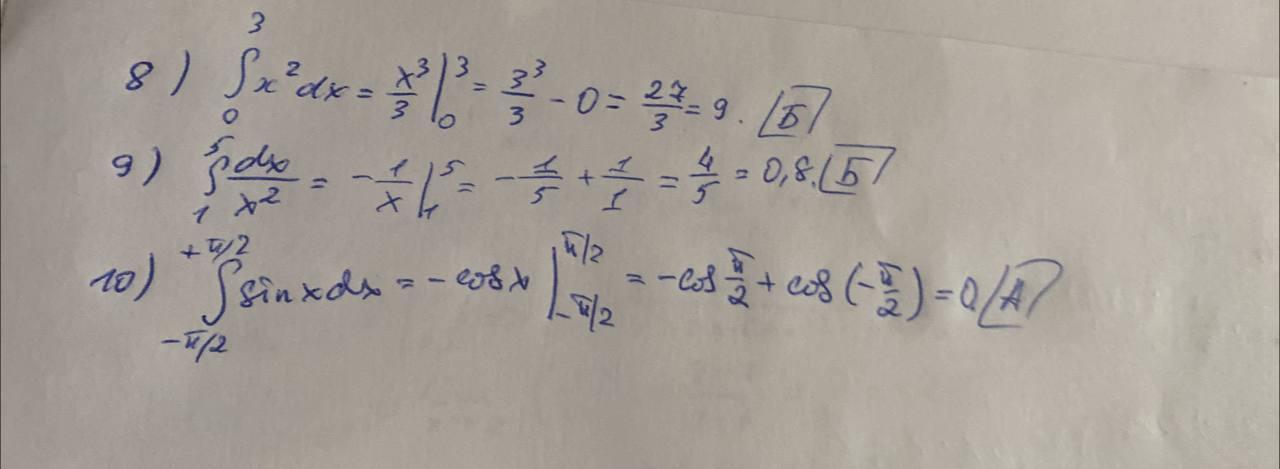 8) ∫₀³ x² dx = x³/3 |₀³ = 3³/3 - 0 = 27/3 = 9. Б
9) ∫₁⁵ dx/x² = -1/x |₁⁵ = -1/5 + 1/1 = 4/5 = 0,8. Б
10) ∫_{-π/2}^{+π/2} sin x dx = -cos x |_{-π/2}^{π/2} = -cos π/2 + cos (-π/2) = 0. А